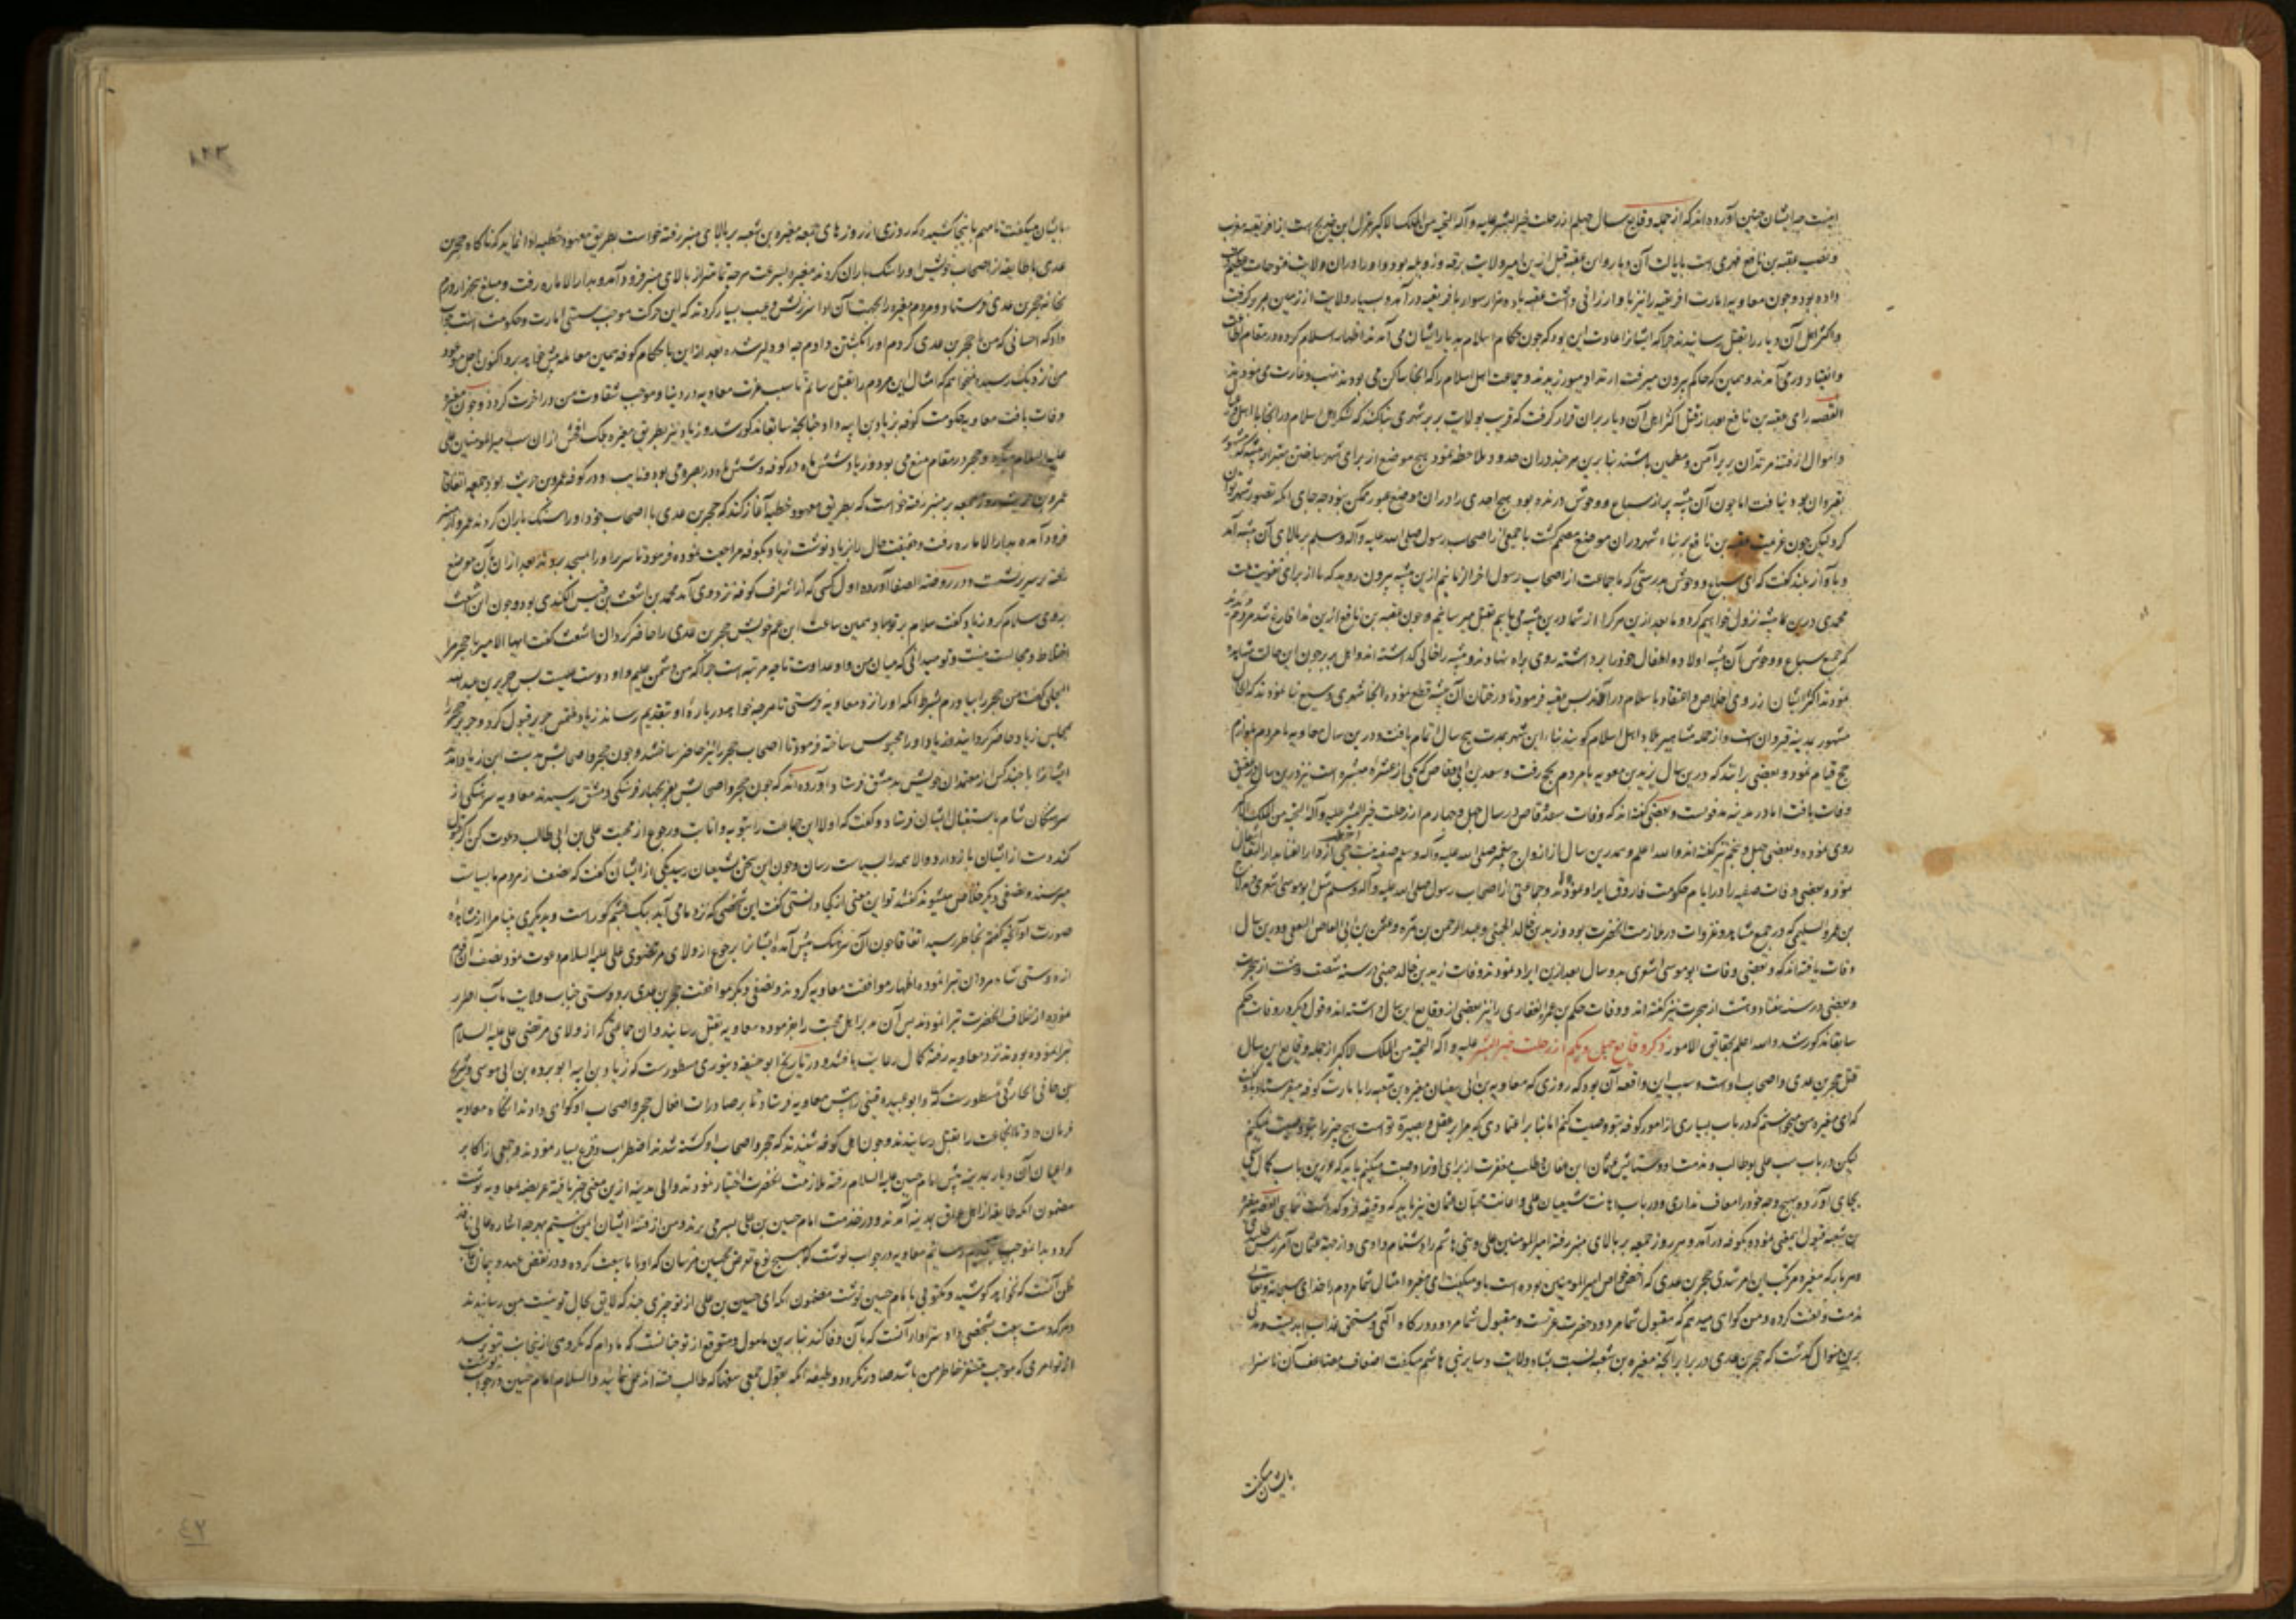 اینست چه ایشان چنین آورده اند که از جمله وقایع سال چهلم از رحلت خیر البشر علیه و آله التحیة من الملک الاکبر عزل ابن خدیج است از افریقیه مغرب
و نصب عقبه بن نافع فهری است بایالت آن دیار و این عقبه قبل ازین امیر ولایت برقه و زویله بود و او را در آن ولایت فتوحات
داده بود و چون معاویه امارت افریقیه را نیز باو ارزانی داشت عقبه با ده هزار سوار بافریقیه در آمد و بسیار ولایت از زمین بربر گرفت
و اکثر اهل آن دیار را بقتل رسانیدند چرا که ایشانرا عادت این بود که چون حکام اسلام بدیار ایشان می آمدند اظهار اسلام کرده در مقام اطاعت
و انقیاد در می آمدند و همان که حاکم بیرون میرفت ارتداد میورزیدند و جماعت اهل اسلام را که آنجا ساکن می بودند نهب و غارت می نمودند
القصه رای عقبه بن نافع بعد از قتل اکثر اهل آن دیار بران قرار گرفت که قریب بولایت بربر شهری بنا کند که لشکر اهل اسلام در آنجا با اهل و عیال
و اموال از فتنه مرتدان بربر آمن و مطمئن باشند بنابرین هر چند در آن حدود ملاحظه نمود هیچ موضع از برای شهر ساختن بهتر از بیشه که مشهور
بقیروان بود نیافت اما چون آن بیشه پر از سباع و وحوش درنده بود هیچ احدی را در آن موضع عبور ممکن نبود چه جای آنکه تصور شهر توان
کرد لیکن چون عزیمت عقبه بن نافع بر بناء شهر در آن موضع مصمم گشت با جمعی از اصحاب رسول صلی الله علیه و آله وسلم بر بالای آن بیشه آمد
و بآواز بلند گفت که ای سباع و وحوش بدرستی که ما جماعت از اصحاب رسول آخر الزمانیم ازین بیشه بیرون روید که ما از برای تقویت ملت
محمدی درین بیشه نزول خواهیم کرد و ما بعد ازین هر کرا از شما درین بیشه می یابیم بقتل میرسانیم و چون عقبه بن نافع ازین ندا فارغ شد مردم دیدند
که جمیع سباع و وحوش آن بیشه اولاد و اطفال خود را برداشته روی براه نهادند و بیشه را خالی گذاشته اند و اهل بربر چون این حالت مشاهده
نمودند اکثر ایشان از روی اخلاص و اعتقاد باسلام در آمدند پس عقبه فرمود تا درختان آن بیشه قطع نموده آنجا شهری وسیع بنا نمودند که الحال
مشهور بمدینه قیروان است و از جمله مشاهیر بلاد اهل اسلام گویند بناء این شهر بمدت پنج سال اتمام یافت و درین سال معاویه با مردم بلوازم
حج قیام نمود و بعضی برانند که درین سال یزید بن معویه با مردم بحج رفت و سعد بن ابی وقاص که یکی از عشره مبشره است نیز درین سال
وفات یافت اما در مدینه مدفونست و بعضی گفته اند که وفات سعد وقاص در سال چهل و چهارم از رحلت خیر البشر علیه و آله التحیة من الملک الاکبر
روی نموده و بعضی چهل و پنجم نیز گفته اند والله اعلم و هم درین سال از ازواج پیغمبر صلی الله علیه و آله وسلم صفیه بنت حیی از دار الفنا بدار البقا انتقال
نمود و بعضی وفات صفیه را در ایام حکومت فاروق ایراد نموده اند و جماعتی از اصحاب رسول صلی الله علیه و آله وسلم مثل ابو موسی اشعری و
بن عمرو السلیمی که در جمیع مشاهد و غزوات در ملازمت آنحضرت بود و زید بن خالد الجهنی و عبد الرحمن بن سمره و عثمن بن ابی العاص الثقفی درین سال
وفات یافته اند که و بعضی وفات ابو موسی اشعری بدو سال بعد ازین ایراد نمودند و وفات زید بن خالد جهنی در سنه شصت و هشت از هجرت
و بعضی در سنه هفتاد و هشت از هجرت نیز گفته اند و وفات حکم بن عمرو الغفاری را نیز بعضی از وقایع این سال داشته اند و قول دیگر در وفات حکم
سابقا مذکور شد والله اعلم بحقایق الامور ذکر وقایع چهل و یکم از رحلت خیر البشر علیه و آله التحیة من الملک الاکبر از جمله وقایع این سال
قتل حجر بن عدی و اصحاب اوست و سبب این واقعه آن بود که روزی که معاویه بن ابی سفیان مغیره بن شعبه را بامارت کوفه میفرستاد باو گفت
که ای مغیره من میخواستم که در باب بسیاری از امور کوفه بتو وصیت کنم اما بنا بر اعتمادی که مرا بر عقل و بصیرة تو است هیچ چیز را بتو وصیت نمیکنم
لیکن در باب سب علی ابوطالب و مذمت او و ستایش عثمان ابن عفان و طلب مغفرت از برای او ترا وصیت میکنم باید که درین باب کمال سعی
بجای آورده بهیچ وجه خود را معاف نداری و در باب اهانت شیعیان علی و اعانت محبان عثمان نیز باید که دقیقه فروگذاشت ننمایی القصه مغیره
بن شعبه قبول اینمعنی نموده بکوفه در آمد و هر روز جمعه بر بالای منبر رفته امیر المومنین علی و بنی هاشم را دشنام دادی و از جهة عثمان آمرزش طلبیدی
و هر بار که مغیره مرتکب این امر شدی حجر بن عدی که اخص خواص امیر المومنین بوده است باو میگفت ای مغیره امثال شما مردم را خدای سبحانه و تعالی
مذمت و لعنت کرده و من گواهی میدهم که مقبول شما مردود حضرت عزتست و مقبول شما مردود درگاه آلهی و مستحق عذاب ابدیست و مدتی
برین منوال گذشت که حجر بن عدی در برابر آنچه مغیره بن شعبه نسبت بشاه ولایت و سایر بنی هاشم میگفت اضعاف مضاعف آن ناسزا
بایشان میگفت
۱۲۳
بایشان میگفت تا مهم باینجا کشید که روزی از روزهای جمعه مغیره بن شعبه بر بالای منبر رفته خواست بطریق معهود خطبه ادا نماید که ناگاه حجر بن
عدی با طایفه از اصحاب خویش او را سنگ باران کردند مغیره بسرعت هر چه تمامتر از بالای منبر فرود آمد و بدار الاماره رفت و مبلغ پنجهزار درم
بخانه حجر بن عدی فرستاد و مردم مغیره را بجهت آن ادا سرزنش و عیب بسیار کردند که این حرکت موجب سستی امارت و حکومت است جواب
داد که احسانی که من با حجر بن عدی کردم او را بکشتن دادم چه او دلیر شده بعد ازین با حکام کوفه همین معامله پیش خواهد برد و اکنون اجل موعود
من نزدیک رسید نمیخواهم که امثال این مردم را بقتل رسانم تا سبب عزت معاویه در دنیا و موجب شقاوت من در آخرت گردد و چون مغیره
وفات یافت معاویه حکومت کوفه بزیاد بن ابیه داد چنانچه سابقا مذکور شد و زیاد نیز بطریق مغیره بلکه افحش از آن سب امیر المومنین علی
علیه السلام میکرد و حجر در مقام منع می بود و زیاد شش ماه در کوفه و شش ماه در بصره می بود و نایب او در کوفه عمرو بن حریث بود جمعه اتفاقا
عمرو بن حریث روز جمعه بر منبر رفته خواست که بطریق معهود خطبه آغاز کند که حجر بن عدی با اصحاب خود او را سنگ باران کردند عمرو از منبر
فرود آمده بدار الاماره رفت و حقیقت حال را بزیاد نوشت زیاد بکوفه مراجعت نموده فرمود تا سریر او را بمسجد بردند بعد از آن بآن موضع
رفته بر سریر نشست و در روضة الصفا آورده اول کسی که از اشراف کوفه نزد وی آمد محمد بن اشعث بن قیس الکندی بود و چون ابن اشعث
بروی سلام کرد زیاد گفت سلام بر تو مباد همین ساعت ابن عم خویش حجر بن عدی را حاضر گردان اشعث گفت ایها الامیر با حجر مرا
اختلاط و مجالست نیست و تو میدانی که میان من و او عداوت تا چه مرتبه است چرا که من دشمن علیم و او دوست علیست پس جریر بن عبد الله
البجلی گفت من حجر را بیاورم بشرط آنکه او را نزد معاویه فرستی تا هر چه خواهد در باره او بتقدیم رساند زیاد ملتمس جریر قبول کرد و جریر حجر را
بمجلس زیاد حاضر گردانید و زیاد او را محبوس ساخته فرمود تا اصحاب حجر را نیز حاضر ساختند و چون حجر و اصحابش بدست ابن زیاد آمدند
ایشانرا با چند کس از معتمدان خویش بدمشق فرستاد آورده اند که چون حجر و اصحابش بمرج بچهار فرسنگی دمشق رسیدند معاویه سرهنگی از
سرهنگان شام باستقبال ایشان فرستاد و گفت که اولا این جماعت را بتوبه و انابت و رجوع از محبت علی بن ابی طالب دعوت کن اگر قبول
کنند دست از ایشان باز دار و الا همه را بسیاست رسان و چون این سخن بشیعیان رسید یکی از ایشان گفت که نصف از مردم ما بسیاست
میرسند و نصفی دیگر خلاص میشوند گفتند تو این معنی از کجا دانستی گفت این شخصی که نزد ما می آید بیک چشم کور است و بدیگری بینا مرا از مشاهده
صورت او آنچه گفتم بخاطر رسید اتفاقا چون آن سرهنگ پیش آمده ایشانرا برجوع از ولای مرتضوی علی علیه السلام دعوت نمود نصف آن قوم
از دوستی شاه مردان تبرا نموده اظهار موافقت معاویه کردند و نصفی دیگر موافقت حجر بن عدی و دوستی جناب ولایت مآب اظهار
نموده از خلاف آنحضرت تبرا نمودند پس آن مدبر اهل محبت را بفرموده معاویه بقتل رسانید و آن جماعتی که از ولای مرتضی علی علیه السلام
تبرا نموده بودند نزد معاویه رفته کمال رعایت یافتند و در تاریخ ابو حنیفه دینوری مسطورست که زیاد بن ابیه ابو برده بن ابی موسی و شریح
بن هانی الحارثی مسطورست که و ابو عبیده قینی را پیش معاویه فرستاد تا بر صادرات افعال حجر و اصحاب او گواهی دادند آنگاه معاویه
فرمان داد تا آنجماعت را بقتل رسانیدند و چون اهل کوفه شنیدند که حجر و اصحاب او کشته شدند اضطراب و فزع بسیار نمودند و جمعی از اکابر
و اعیان آن دیار بمدینه پیش امام حسین علیه السلام رفته ملازمت آنحضرت اختیار نمودند والی مدینه ازین معنی خبر یافته عریضه بمعاویه نوشت
مضمون آنکه طایفه از اهل عراق بمدینه آمدند و در خدمت امام حسین بن علی بسر می برند و من از فتنه ایشان ایمن نیستم بهر چه اشاره عالی نافذ
گردد بدانموجب بتقدیم رسانم معاویه در جواب نوشت که بهیچ نوع تعرض بحسین مرسان که او با ما بیعت کرده و در نقض عهد و پیمان
ظن آنست که نخواهد کوشید و مکتوبی بامام حسین نوشت مضمون آنکه ای حسین بن علی از تو چیزی چند که لایق بحال تو نیست بمن رسانیدند
و هر که دست بیعت بشخصی داد سزاوار آنست که بآن وفا کند بنابرین مامول و متوقع از تو چنانست که مادام که مکروهی از ینجانب بتو نرسد
از تو امری که موجب تنفر خاطر من باشد صادر نگردد و طیفه آنکه بقول جمعی سفها که طالب فتنه اند عمل ننمائید والسلام امام حسین در جواب نوشت